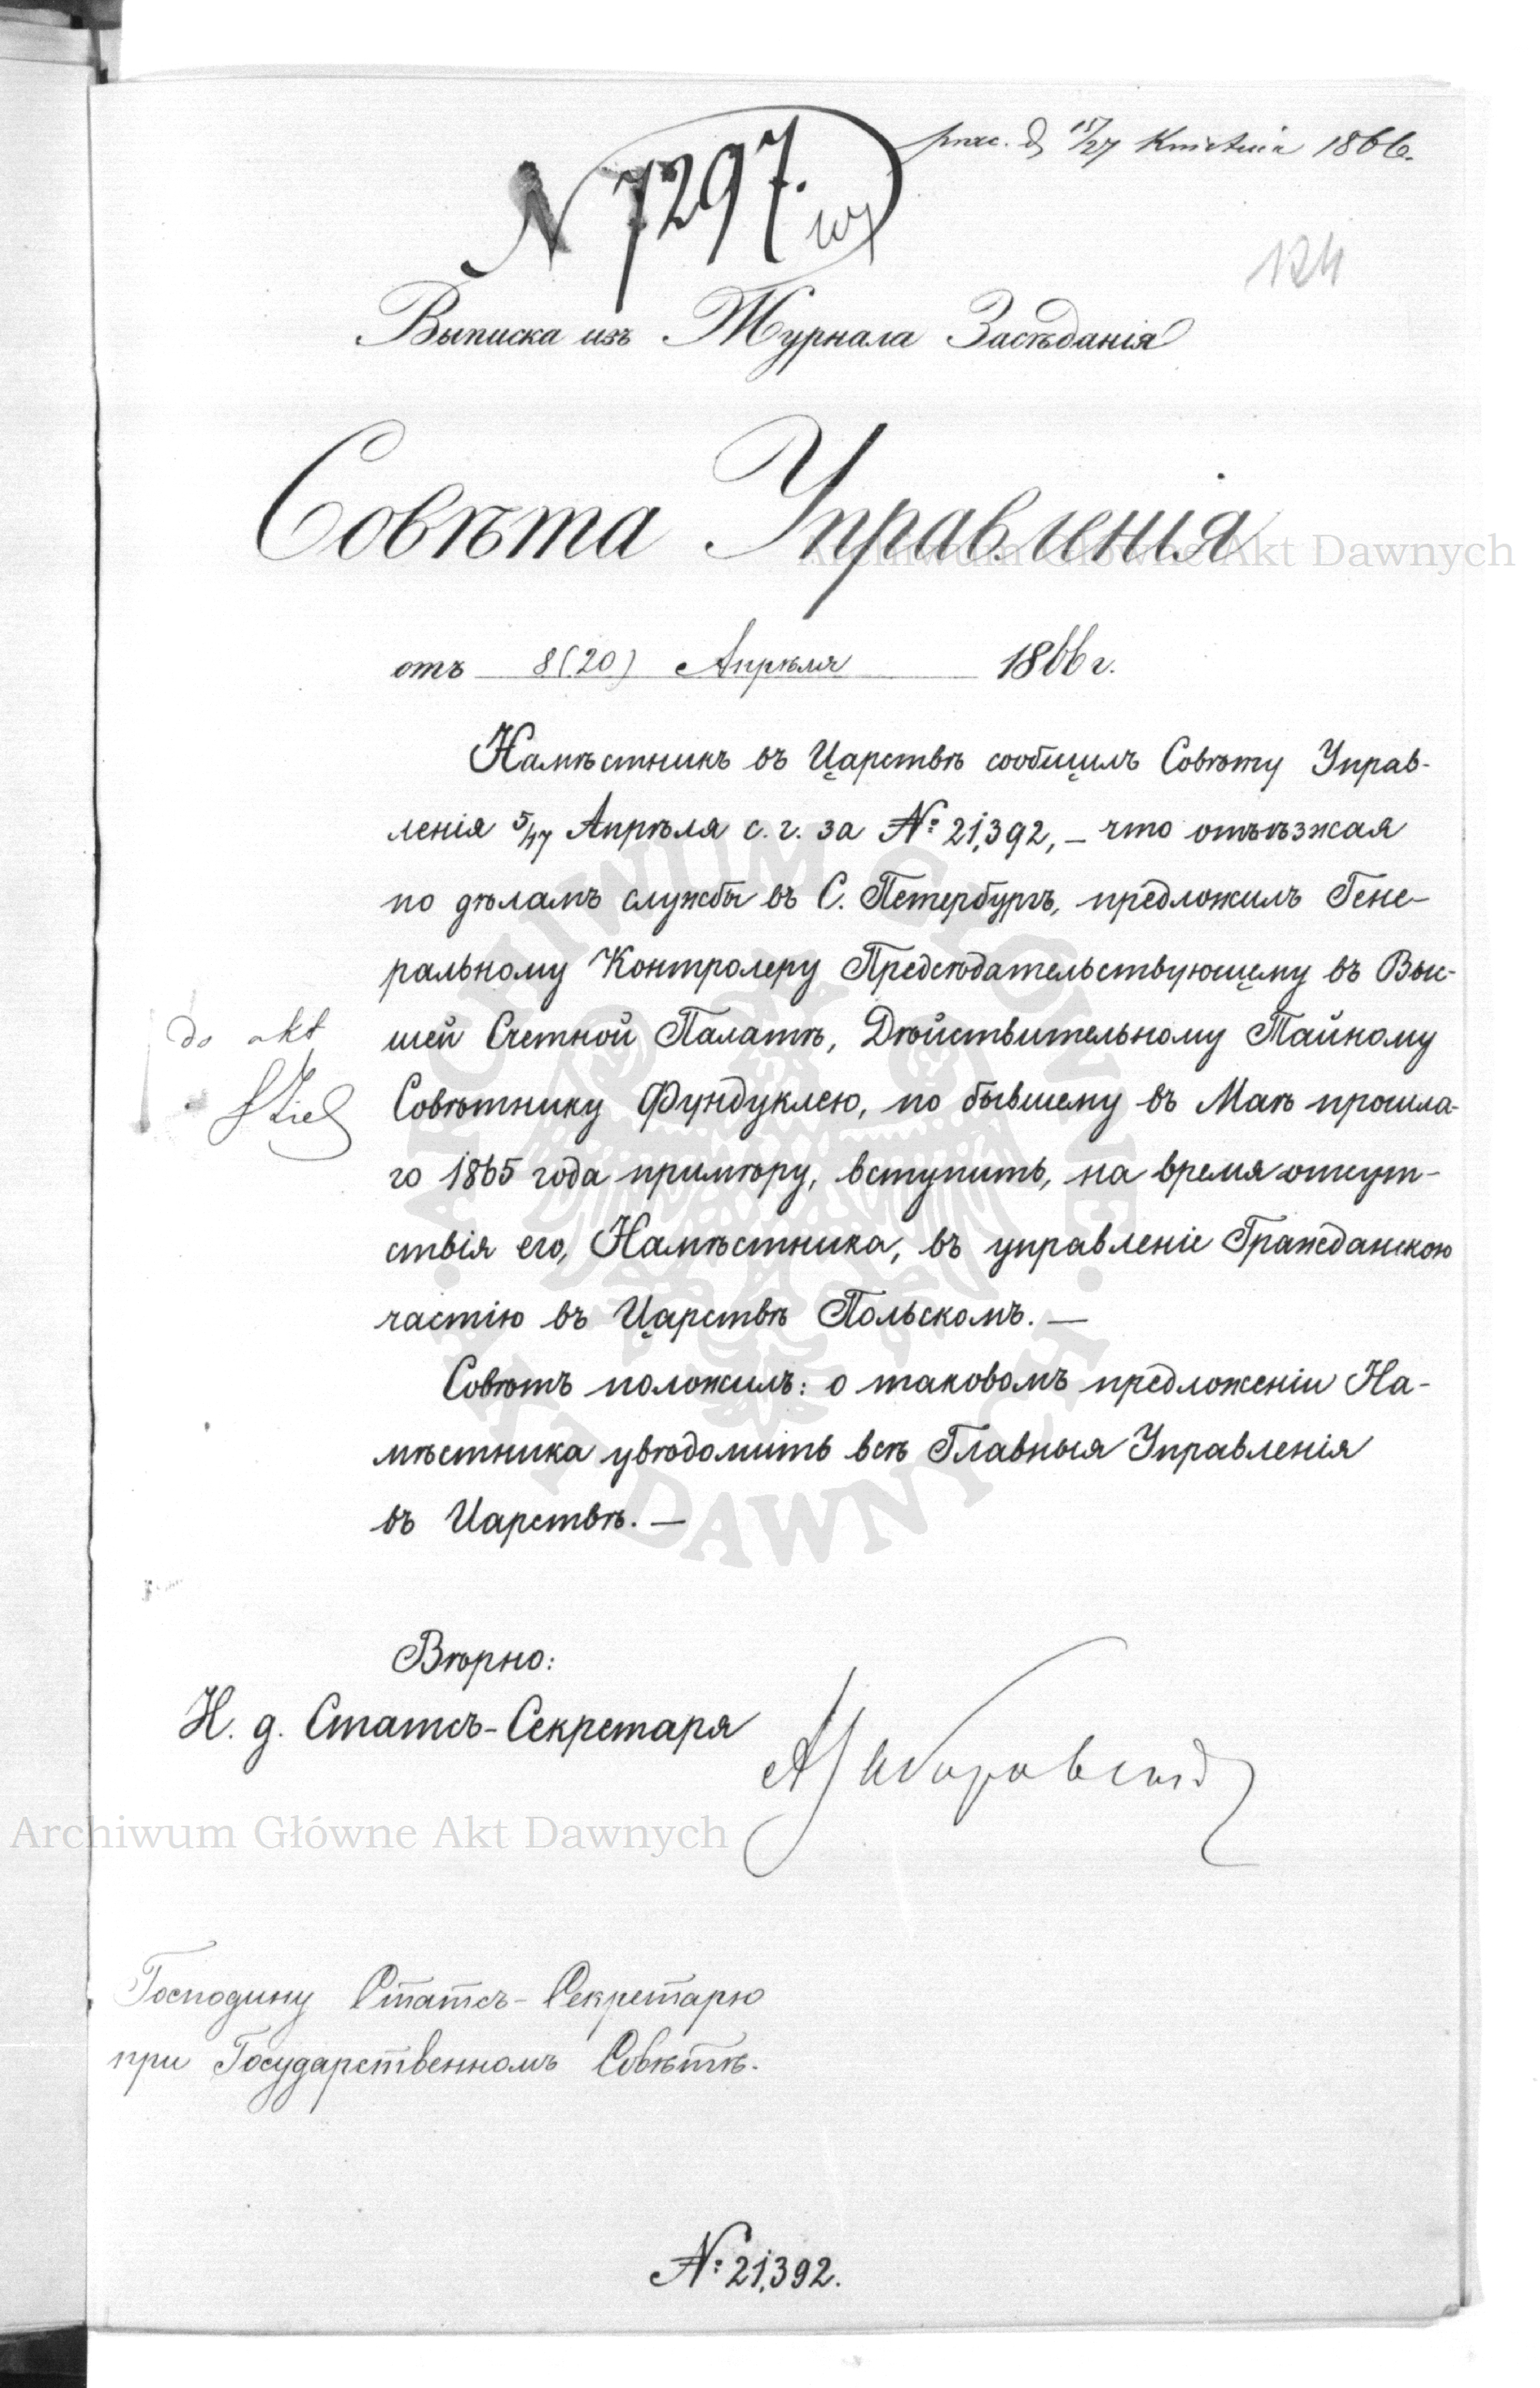 N 7297.
d. 15/27 Kwietnia 1866.
124
Выписка изъ Журнала Засѣданія
Совѣта Управленія
отъ 8(20) Апрѣля 1866 г.
Намѣстникъ въ Царствѣ сообщилъ Совѣту Управ-
ленія 5/17 Апрѣля с. г. за №: 21,392, – что отъѣзжая
по дѣламъ службы въ С. Петербургъ, предложилъ Гене-
ральному Контролеру Предсѣдательствующему въ Выс-
шей Счетной Палатѣ, Дѣйствительному Тайному
до akt
Совѣтнику Фундуклею, по бывшему въ Маѣ прошла-
го 1865 года примѣру, вступить, на время отсут-
ствія его, Намѣстника, въ управленіе Гражданскою
частію въ Царствѣ Польскомъ. —
Совѣтъ положилъ: о таковомъ предложеніи На-
мѣстника увѣдомить всѣ Главныя Управленія
въ Царствѣ. —
Вѣрно:
И. д. Статсъ-Секретаря
Господину Статсъ-Секретарю
при Государственномъ Совѣтѣ.
№: 21,392.
Archiwum Główne Akt Dawnych
Archiwum Główne Akt Dawnych
ARCHIWUM GŁÓWNE AKT DAWNYCH